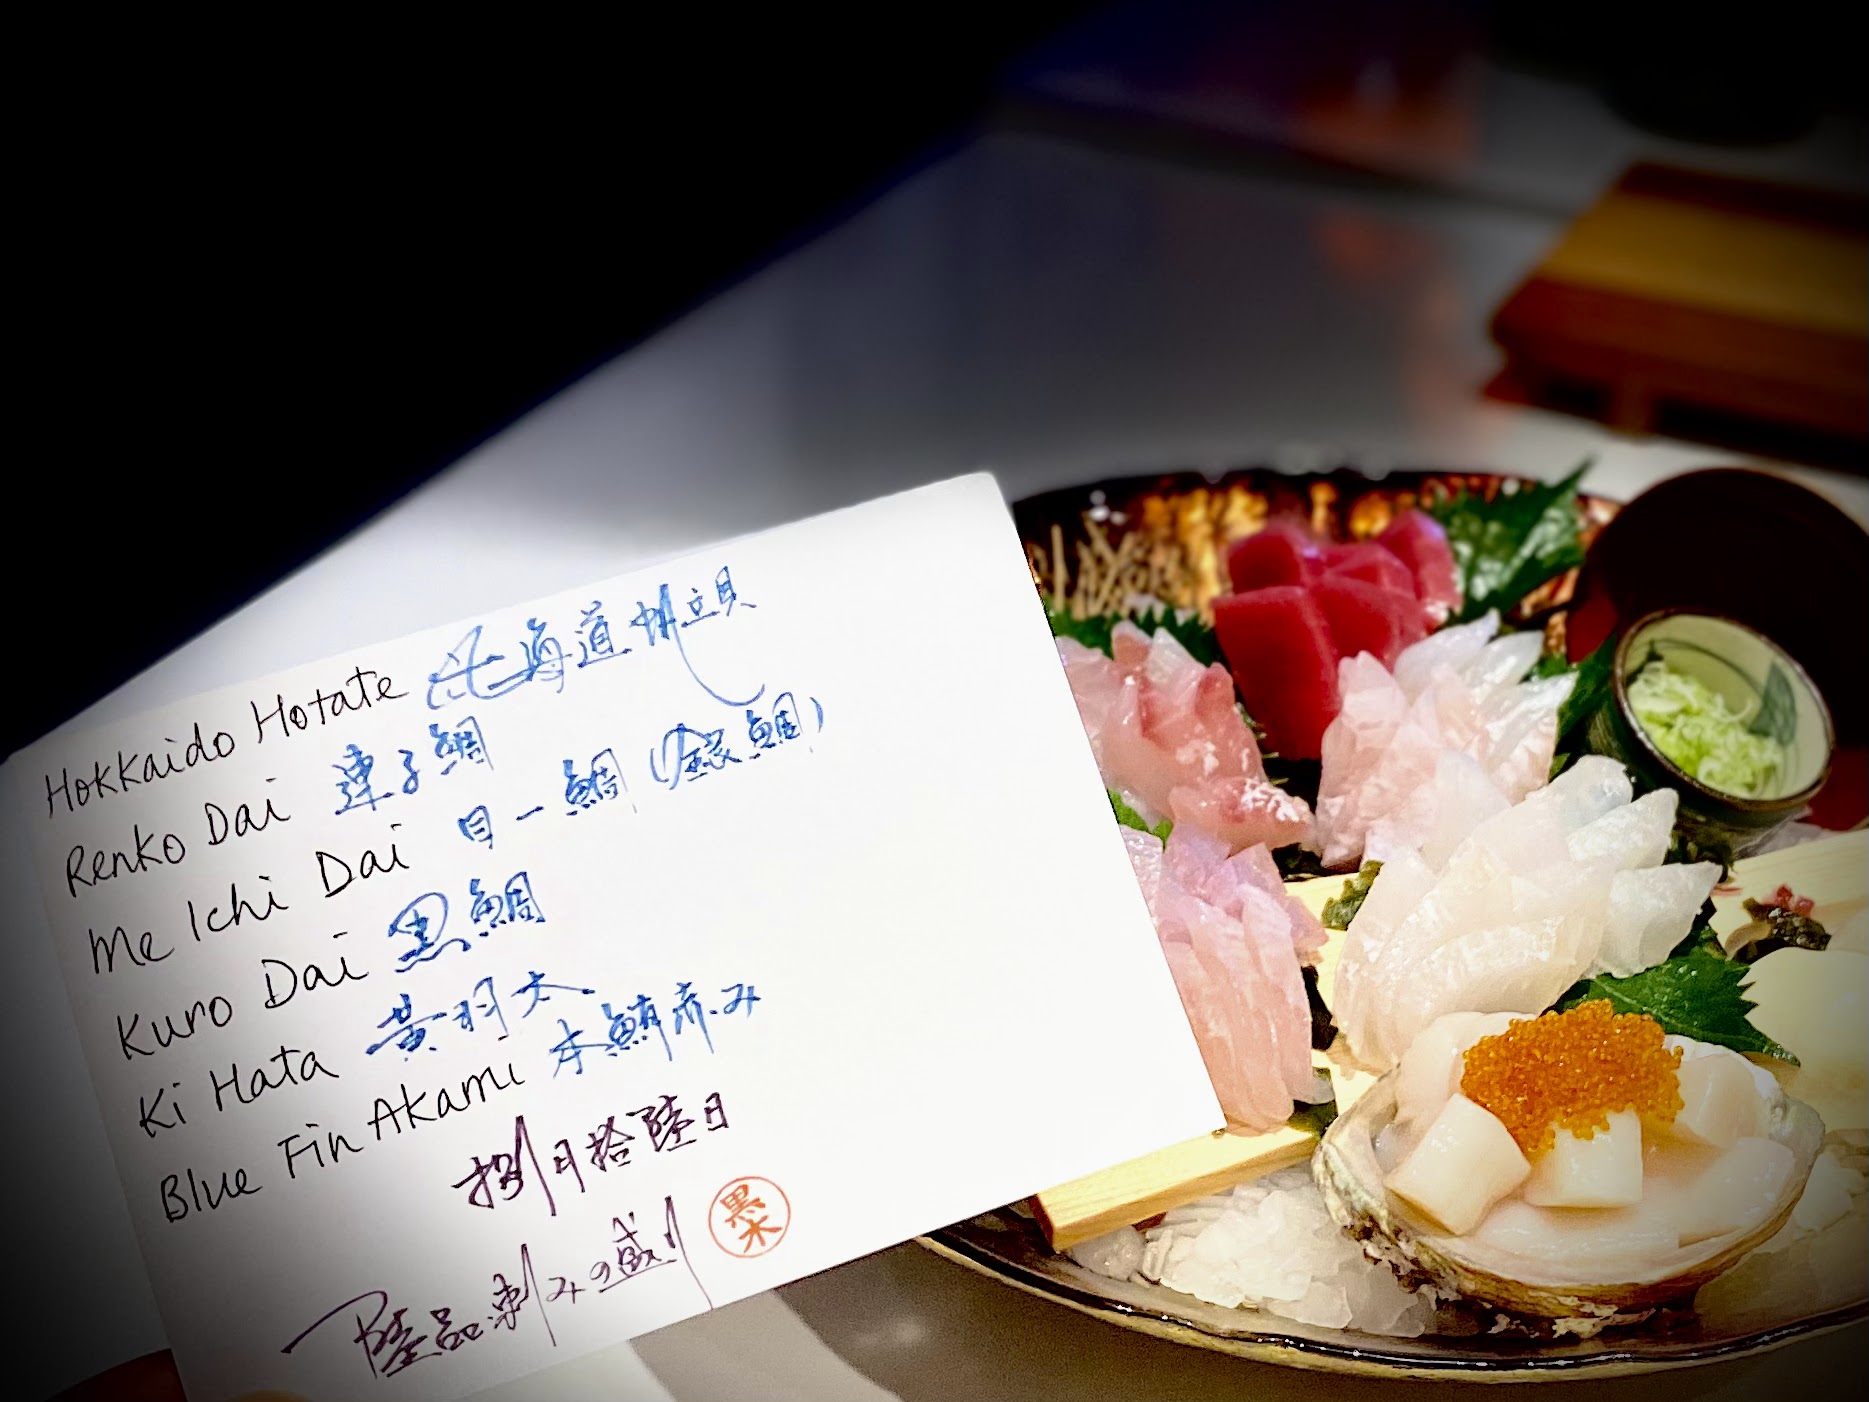 Hokkaido Hotate 北海道帆立貝
Renko Dai 連子鯛
Me Ichi Dai 目一鯛 (銀鯛)
Kuro Dai 黒鯛
Ki Hata 黄羽太
Blue Fin Akami 本鮪赤み
捌月拾陸日
陸品刺みの盛り
黒木